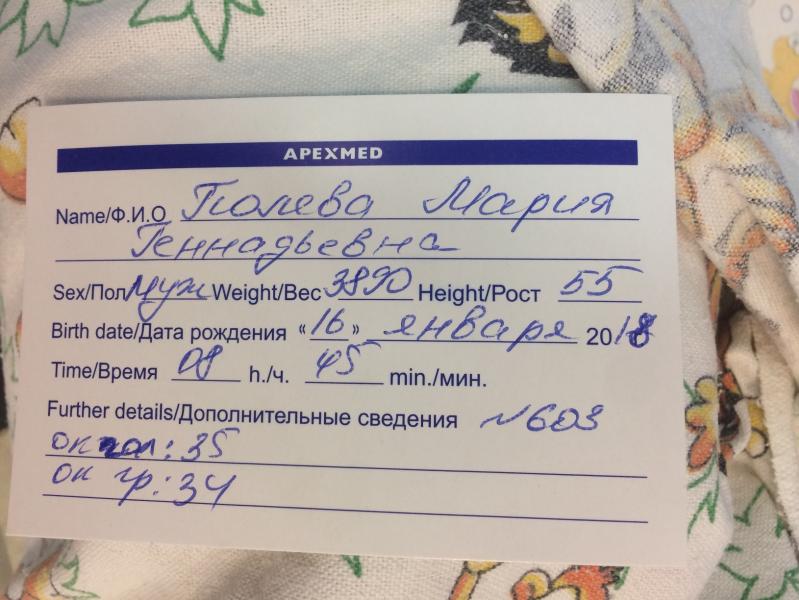 APEXMED
Name/Ф.И.О Полева Мария
Геннадьевна
Sex/Пол Муж Weight/Вес 3890 Height/Рост 55
Birth date/Дата рождения «16» января 2018
Time/Время 08 h./ч. 45 min./мин.
Further details/Дополнительные сведения №603
ок гол: 35
ок гр.: 34